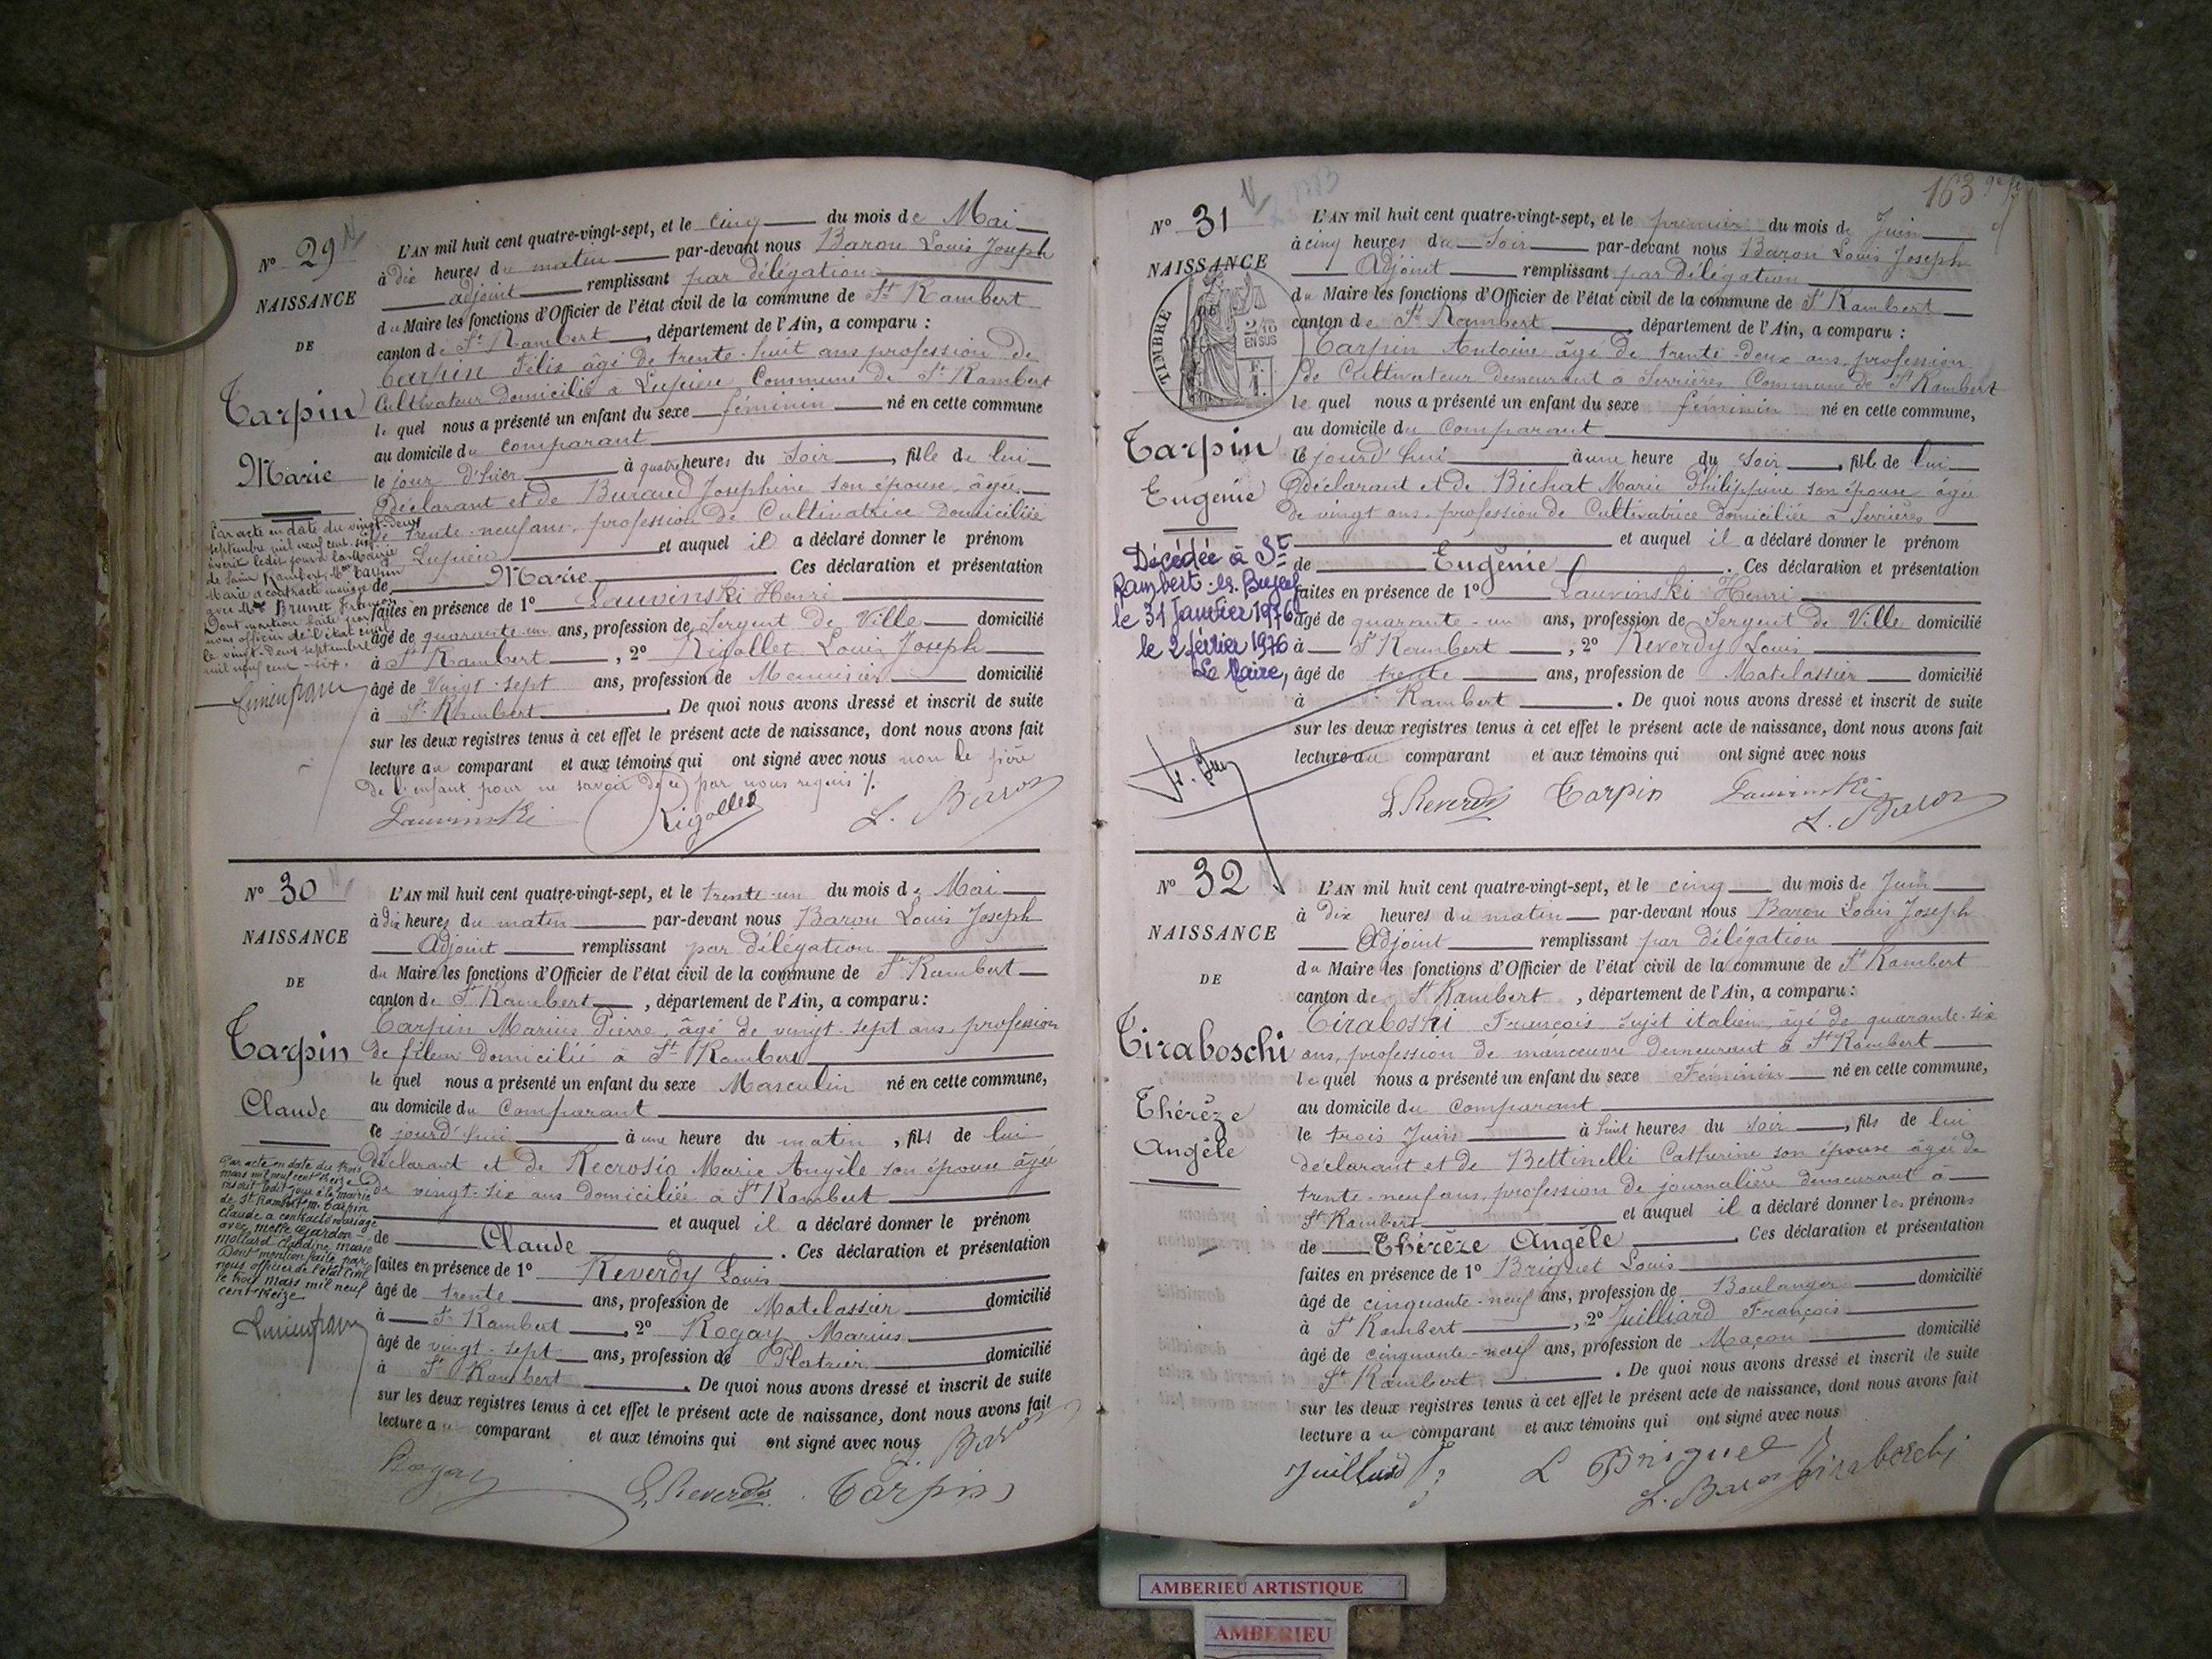 N° 29
NAISSANCE
DE
Tarpin
Marie
Par acte en date du vingt-deux
septembre mil neuf cent-six
inscrit ledit jour à la Mairie
de Saint Rambert, Melle Tarpin
Marie a contracté mariage
avec Mr Brunet François
Dont mention faite par
nous officier de l'état civil
le vingt-deux septembre
mil neuf cent-six.
L'AN mil huit cent quatre-vingt-sept, et le cinq du mois de Mai
à dix heures du matin par-devant nous Baron Louis Joseph
adjoint remplissant par délégation
du Maire les fonctions d'Officier de l'état civil de la commune de St Rambert
canton de St Rambert, département de l'Ain, a comparu :
Tarpin Félix âgé de trente-huit ans profession de
Cultivateur Domicilié à Lupieu Commune de St Rambert
le quel nous a présenté un enfant du sexe féminin né en cette commune
au domicile du comparant
le jour d'hier à quatre heures du soir, fille de lui
Déclarant et de Buraud Josephine son épouse âgée
de trente-neuf ans, profession de Cultivatrice domiciliée
Lupieu et auquel il a déclaré donner le prénom
de Marie. Ces déclaration et présentation
faites en présence de 1° Lauvinski Henri
âgé de quarante-un ans, profession de Sergent de Ville domicilié
à St Rambert, 2° Rigollet Louis Joseph
âgé de vingt-sept ans, profession de Menuisier domicilié
à St Rambert. De quoi nous avons dressé et inscrit de suite
sur les deux registres tenus à cet effet le présent acte de naissance, dont nous avons fait
lecture au comparant et aux témoins qui ont signé avec nous non le père
de l'enfant pour ne savoir de ce par nous requis ./.
Lauvinski Rigollet L. Baron
N° 30
NAISSANCE
DE
Tarpin
Claude
Par acte en date du trois
mars mil neuf cent treize
inscrit ledit jour à la mairie
de St Rambert M. Tarpin
Claude a contracté mariage
avec Melle Gardon-
Mollard Claudine Marie
Dont mention faite par
nous officier de l'état civil
le trois mars mil neuf
cent treize
L'AN mil huit cent quatre-vingt-sept, et le trente-un du mois de Mai
à dix heures du matin par-devant nous Baron Louis Joseph
Adjoint remplissant par délégation
du Maire les fonctions d'Officier de l'état civil de la commune de St Rambert
canton de St Rambert, département de l'Ain, a comparu :
Tarpin Marius Pierre, âgé de vingt-sept ans profession
de fileur domicilié à St Rambert
le quel nous a présenté un enfant du sexe Masculin né en cette commune,
au domicile du Comparant
ce jourd'hui à une heure du matin, fils de lui
déclarant et de Recrosio Marie Angèle son épouse âgée
de vingt-six ans domiciliée à St Rambert
et auquel il a déclaré donner le prénom
de Claude. Ces déclaration et présentation
faites en présence de 1° Reverdy Louis
âgé de trente ans, profession de Matelassier domicilié
à St Rambert, 2° Rogay Marius
âgé de vingt-sept ans, profession de Platrier domicilié
à St Rambert. De quoi nous avons dressé et inscrit de suite
sur les deux registres tenus à cet effet le présent acte de naissance, dont nous avons fait
lecture au comparant et aux témoins qui ont signé avec nous
L. Baron
Rogay L Reverdy Tarpin
163
N° 31
NAISSANCE
DE
TIMBRE
2/10 EN SUS
Tarpin
Eugénie
Décédée à St
Rambert-en-Bugey
le 31 Janvier 1976
le 2 février 1976
Le Maire,
L'AN mil huit cent quatre-vingt-sept, et le premier du mois de Juin
à cinq heures du soir par-devant nous Baron Louis Joseph
Adjoint remplissant par délégation
du Maire les fonctions d'Officier de l'état civil de la commune de St Rambert
canton de St Rambert, département de l'Ain, a comparu :
Tarpin Antoine âgé de trente-deux ans, profession
de Cultivateur demeurant à Serrières Commune de St Rambert
le quel nous a présenté un enfant du sexe féminin né en cette commune,
au domicile du Comparant
ce jourd'hui à une heure du soir, fille de lui
déclarant et de Bichat Marie Philippine son épouse âgée
de vingt ans profession de Cultivatrice domiciliée à Serrières
et auquel il a déclaré donner le prénom
de Eugénie. Ces déclaration et présentation
faites en présence de 1° Lauvinski Henri
âgé de quarante-un ans, profession de Sergent de Ville domicilié
à St Rambert, 2° Reverdy Louis
âgé de trente ans, profession de Matelassier domicilié
à St Rambert. De quoi nous avons dressé et inscrit de suite
sur les deux registres tenus à cet effet le présent acte de naissance, dont nous avons fait
lecture au comparant et aux témoins qui ont signé avec nous
L Reverdy Tarpin Lauvinski
L. Baron
N° 32
NAISSANCE
DE
Tiraboschi
Thérèze
Angèle
L'AN mil huit cent quatre-vingt-sept, et le cinq du mois de Juin
à dix heures du matin par-devant nous Baron Louis Joseph
Adjoint remplissant par délégation
du Maire les fonctions d'Officier de l'état civil de la commune de St Rambert
canton de St Rambert, département de l'Ain, a comparu :
Tiraboski François sujet italien, âgé de quarante-six
ans, profession de manœuvre demeurant à St Rambert
le quel nous a présenté un enfant du sexe Féminin né en cette commune,
au domicile du comparant
le trois Juin à huit heures du soir, fils de lui
déclarant et de Bettinelli Catherine son épouse âgée de
trente-neuf ans, profession de journalière demeurant à
St Rambert et auquel il a déclaré donner les prénoms
de Thérèze Angèle. Ces déclaration et présentation
faites en présence de 1° Briguet Louis
âgé de cinquante-neuf ans, profession de Boulanger domicilié
à St Rambert, 2° Juilliard François
âgé de cinquante-neuf ans, profession de Maçon domicilié
St Rambert. De quoi nous avons dressé et inscrit de suite
sur les deux registres tenus à cet effet le présent acte de naissance, dont nous avons fait
lecture au comparant et aux témoins qui ont signé avec nous
Juilliard L Briguet Tiraboschi
L. Baron
AMBERIEU ARTISTIQUE
AMBERIEU